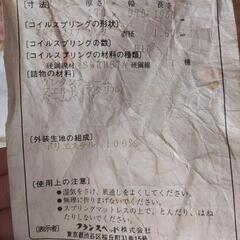 [寸 法] 厚さ・ 幅 長さ
[コイルスプリングの形状]
[コイルスプリングの数]
[コイルスプリングの材料の種類]
硬鋼線材 硬鋼線 種
[詰物の材料]
フエルト
[外装生地の組成]
ポリエステル 100%
[使用上の注意]
●湿気をさけ、風通しをよくしてください。
●無理に折りまげないでください。
●スプリングマットレスの上で、とんだり、はね
たりしないでください。
(表示者) フランスベッド株式会社
東京都渋谷区桜丘町31番15号